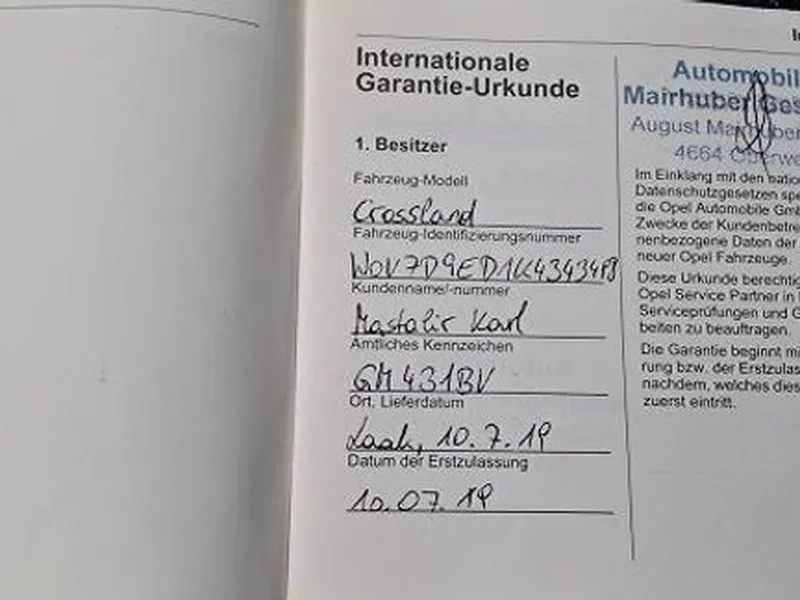 Internationale
Garantie-Urkunde
1. Besitzer
Fahrzeug-Modell
Crossland
Fahrzeug-Identifizierungsnummer
Kundenname/-nummer
Karl
Amtliches Kennzeichen
GM 431BV
Ort, Lieferdatum
10.7.19
Datum der Erstzulassung
10.07.19
Automobil
Mairhuber Ges
August
4664
Im Einklang mit den natio
Datenschutzgesetzen spe
die Opel Automobile Gmb
Zwecke der Kundenbetre
nenbezogene Daten der
neuer Opel Fahrzeuge.
Diese Urkunde berechtig
Opel Service Partner in
Serviceprüfungen und G
beiten zu beauftragen.
Die Garantie beginnt mi
rung bzw. der Erstzulas
nachdem, welches dies
zuerst eintritt.